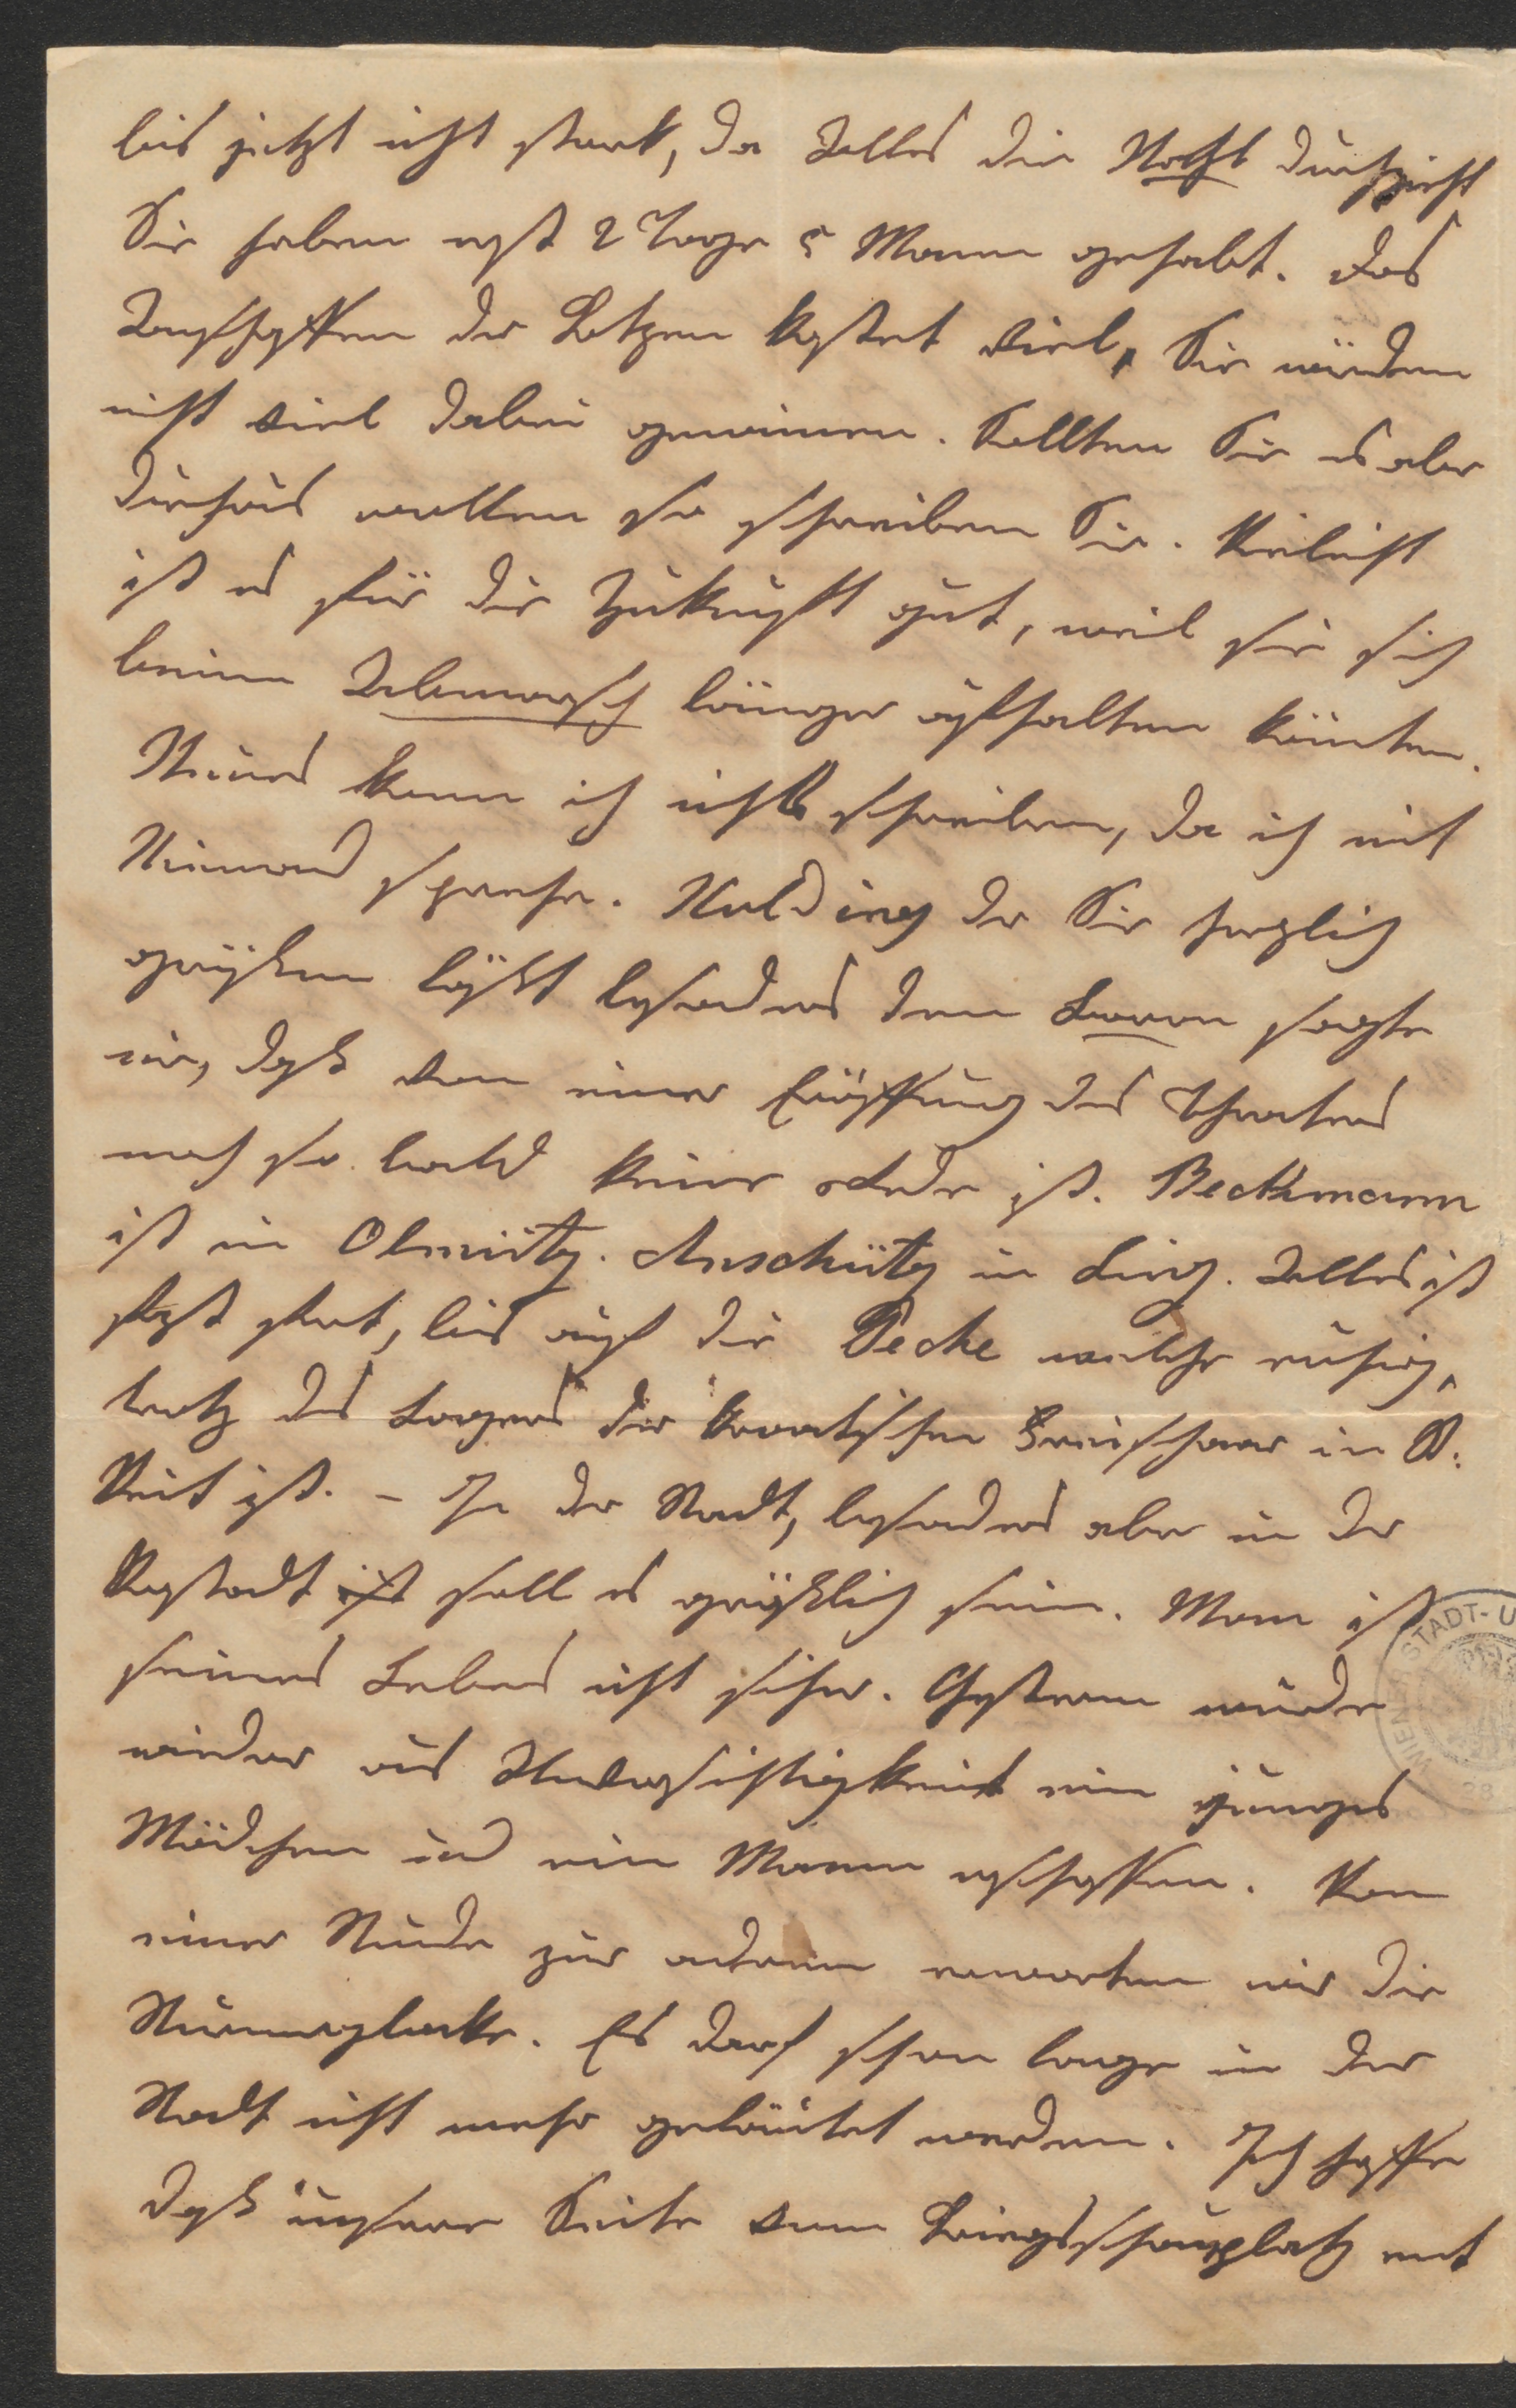 bis jetzt nicht stark, da Alles die Nacht durchzieht
Sie haben erst 2 Tage 5 Mann gehabt. Das
Ausschaffen der Kotzen kostet viel, Sie würden
nicht viel dabei gewinnen. Sollten Sie es aber
durchaus wollen so schreiben Sie. Vieleicht
ist es für die Zukunft gut, weil sie sich
beim Abmarsch länger aufhalten könnten.
Neues kann ich nichts schreiben, da ich mit
Niemand spreche. Nolding der Sie herzlich
grüßen läßt besonders den Baron sagte
mir, daß von einer Eröffnung des Theaters
noch so bald keine Rede ist. Beckmann
ist in Olmütz. Anschütz in Linz. Alles ist
fast fort, bis auf die Peche welche ruhig,
trotz des Lagers der kroatischen Freischaar in St.
Veit ist. – In der Stadt, besonders aber in der
Vorstadt soll es gräßlich sein. Man ist
seines Lebens nicht sicher. Gestern wurde
wieder aus Unvorsichtigkeit ein junges
Mädchen und ein Mann erschossen. Von
einer Stunde zur anderen erwarten wir die
Sturmglocke. Es darf schon lange in der
Stadt nicht mehr geläutet werden. Ich hoffe
daß unsere Seite vom Kriegsschauplatz ent
STADT- U
WIEN